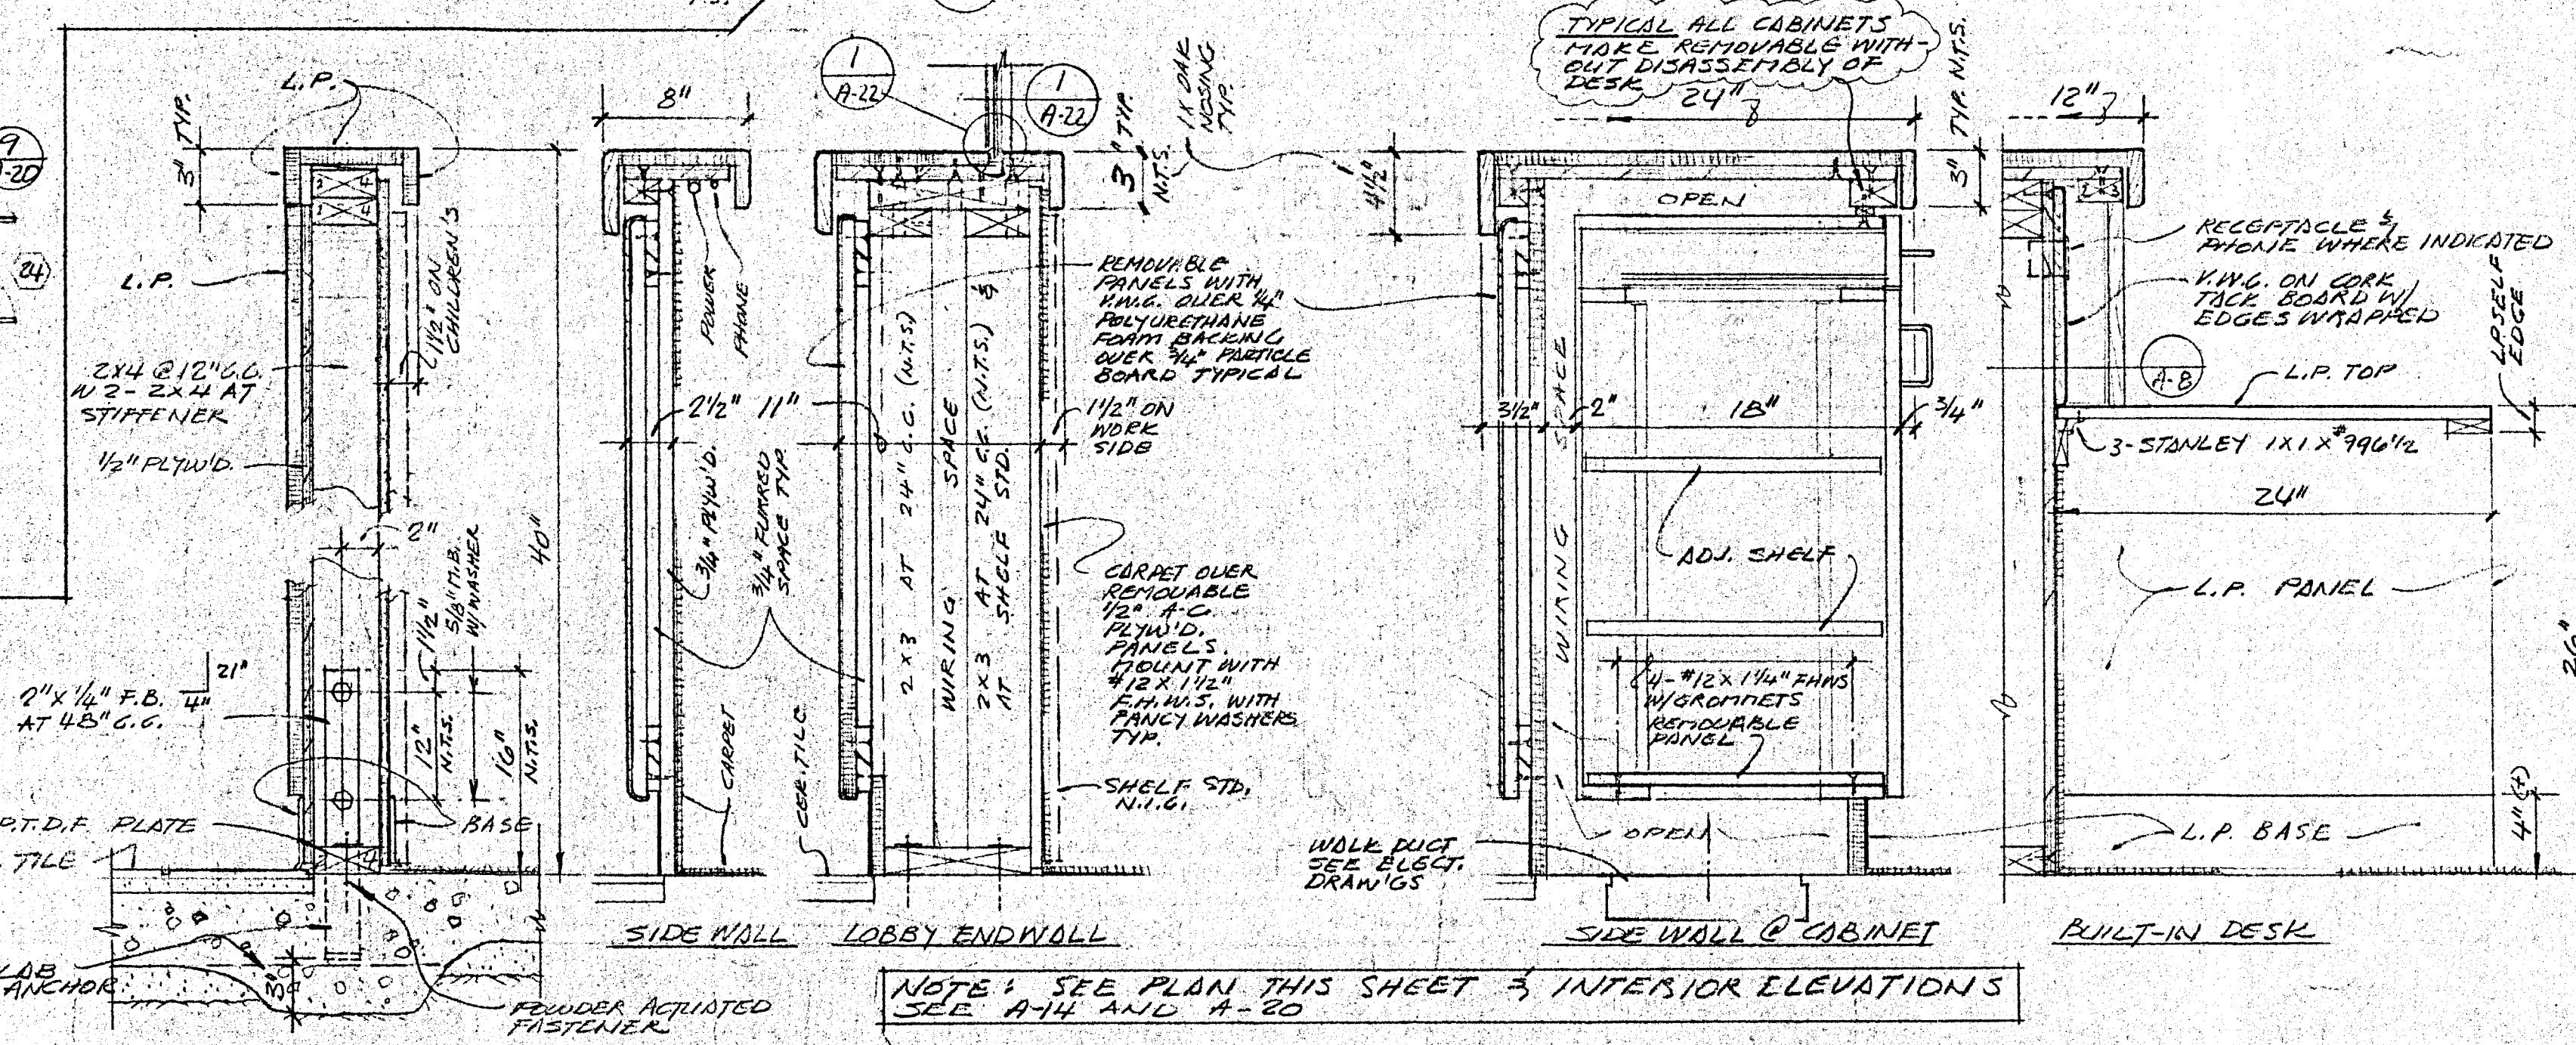 L.P.
3" TYP.
9
24
L.P.
1 1/2" ON
CHILDREN'S
2X4 @ 12" C.C.
W 2- 2X4 AT
STIFFENER
1/2" PLYW'D.
2"
1 1/2"
5/8" M.B.
W/WASHER
21"
4"
2" X 1/4" F.B.
AT 48" C.C.
12"
N.T.S.
16"
N.T.S.
P.T.D.F. PLATE
TILE
BASE
SLAB
ANCHOR
3"
POWDER ACTUATED
FASTENER
40"
8"
POWER
PHONE
2 1/2"
3/4" PLYW'D.
3/4" FURRED
SPACE TYP.
CARPET
CER. TILE
SIDE WALL
1
A-22
1
A-22
3" TYP.
N.T.S.
1X OAK
NOSING
TYP.
11"
2X3 AT 24" C.C. (N.T.S.)
WIRING SPACE
2X3 AT 24" C.C. (N.T.S.) &
AT SHELF STD.
REMOVABLE
PANELS WITH
V.W.C. OVER 1/4"
POLYURETHANE
FOAM BACKING
OVER 3/4" PARTICLE
BOARD TYPICAL
1 1/2" ON
WORK
SIDE
CARPET OVER
REMOVABLE
1/2" A-C.
PLYW'D.
PANELS.
MOUNT WITH
#12 X 1 1/2"
F.H.W.S. WITH
FANCY WASHERS
TYP.
SHELF STD.
N.I.C.
LOBBY ENDWALL
TYPICAL ALL CABINETS
MAKE REMOVABLE WITH-
OUT DISASSEMBLY OF
DESK
24"
3" TYP. N.T.S.
4 1/2"
OPEN
3 1/2"
2"
18"
3/4"
WIRING SPACE
ADJ. SHELF
4-#12 X 1 1/4" FHWS
W/GROMMETS
REMOVABLE
PANEL
OPEN
WALK DUCT
SEE ELECT.
DRAW'GS
SIDE WALL @ CABINET
12"
RECEPTACLE &
PHONE WHERE INDICATED
V.W.C. ON CORK
TACK BOARD W/
EDGES WRAPPED
A-8
L.P. TOP
LP SELF
EDGE
3-STANLEY 1X1X #996 1/2
24"
L.P. PANEL
26"
L.P. BASE
4" (±)
BUILT-IN DESK
NOTE: SEE PLAN THIS SHEET & INTERIOR ELEVATIONS
SEE A-14 AND A-20